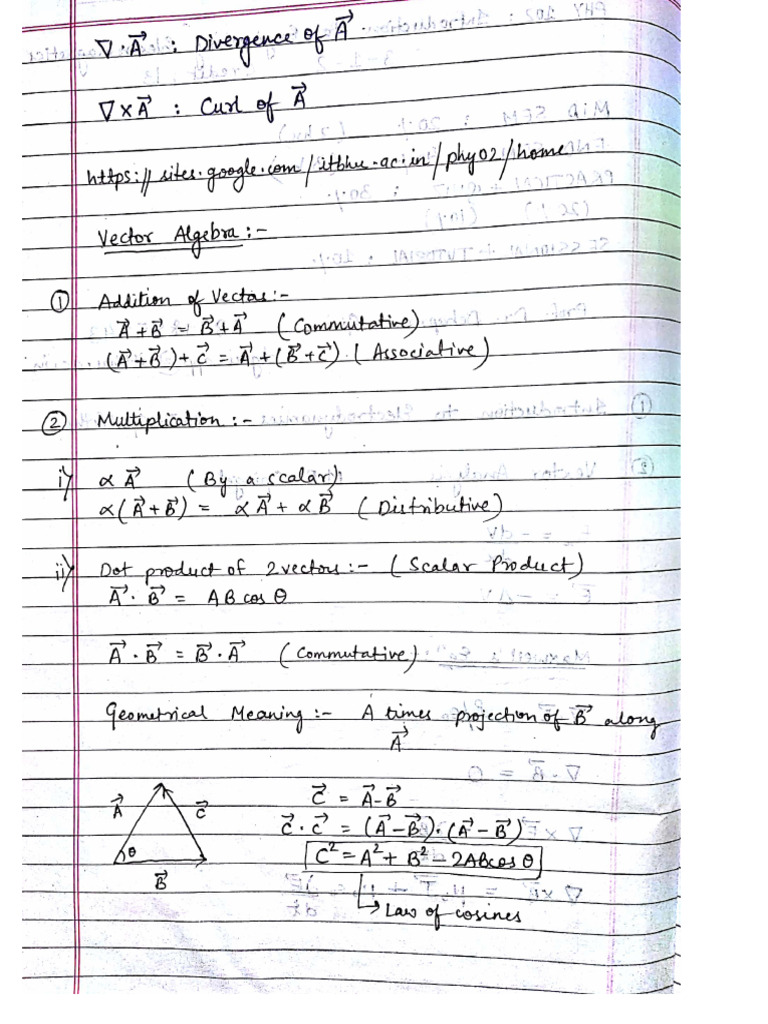 ∇·A⃗ : Divergence of A⃗.
∇×A⃗ : Curl of A⃗
https://sites.google.com/itbhu.ac.in/phy02/home
Vector Algebra:-
① Addition of Vectors:-
A⃗+B⃗ = B⃗+A⃗ (Commutative)
(A⃗+B⃗)+C⃗ = A⃗+(B⃗+C⃗) (Associative)
② Multiplication :-
i) αA⃗ (By a scalar)
α(A⃗+B⃗) = αA⃗ + αB⃗ (Distributive)
ii) Dot product of 2 vectors:- (Scalar Product)
A⃗·B⃗ = AB cos θ
A⃗·B⃗ = B⃗·A⃗ (Commutative)
Geometrical Meaning:- A times projection of B⃗ along
A⃗
A⃗ C⃗
θ
B⃗
C⃗ = A⃗-B⃗
C⃗·C⃗ = (A⃗-B⃗)·(A⃗-B⃗)
C²=A²+B²-2ABcosθ
Law of cosines